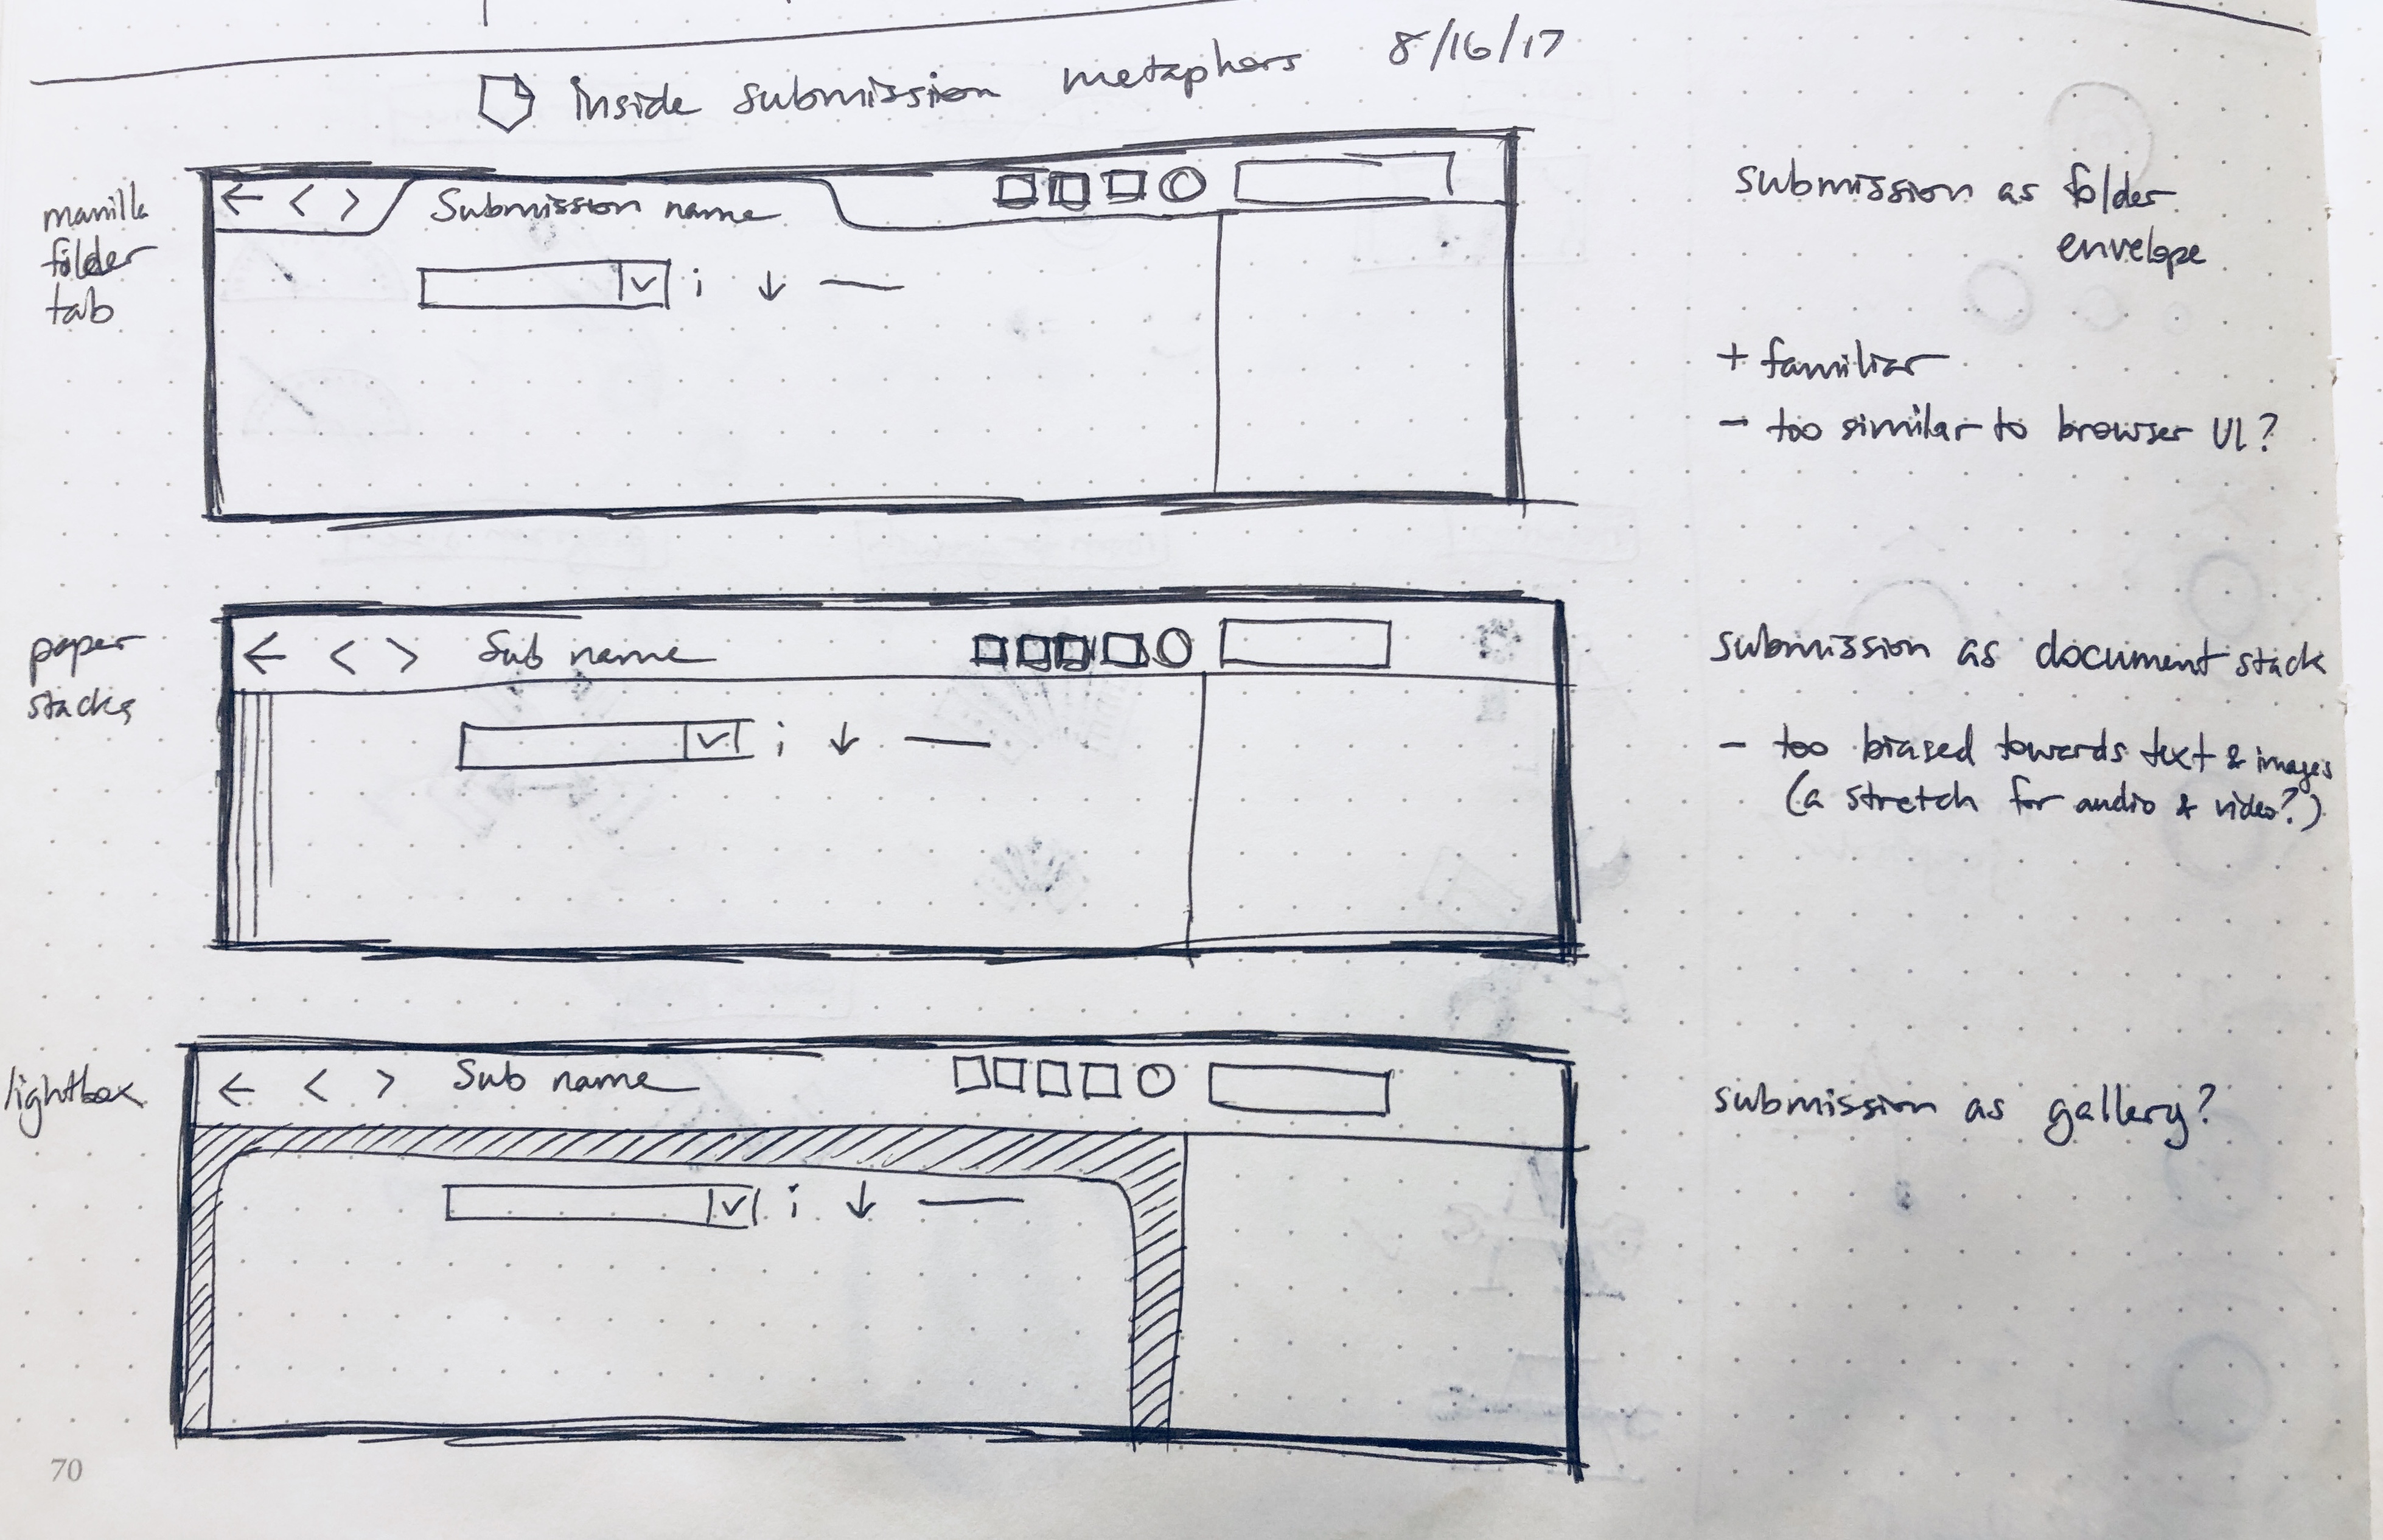 inside submission metaphors 8/16/17
manilla
folder
tab
← < > Submission name
i ↓ —
submission as folder
envelope
+ familiar
- too similar to browser UI?
paper
stacks
← < > Sub name
i ↓ —
submission as document stack
- too biased towards text & images
(a stretch for audio & video?)
lightbox
← < > Sub name
i ↓ —
submission as gallery?
70